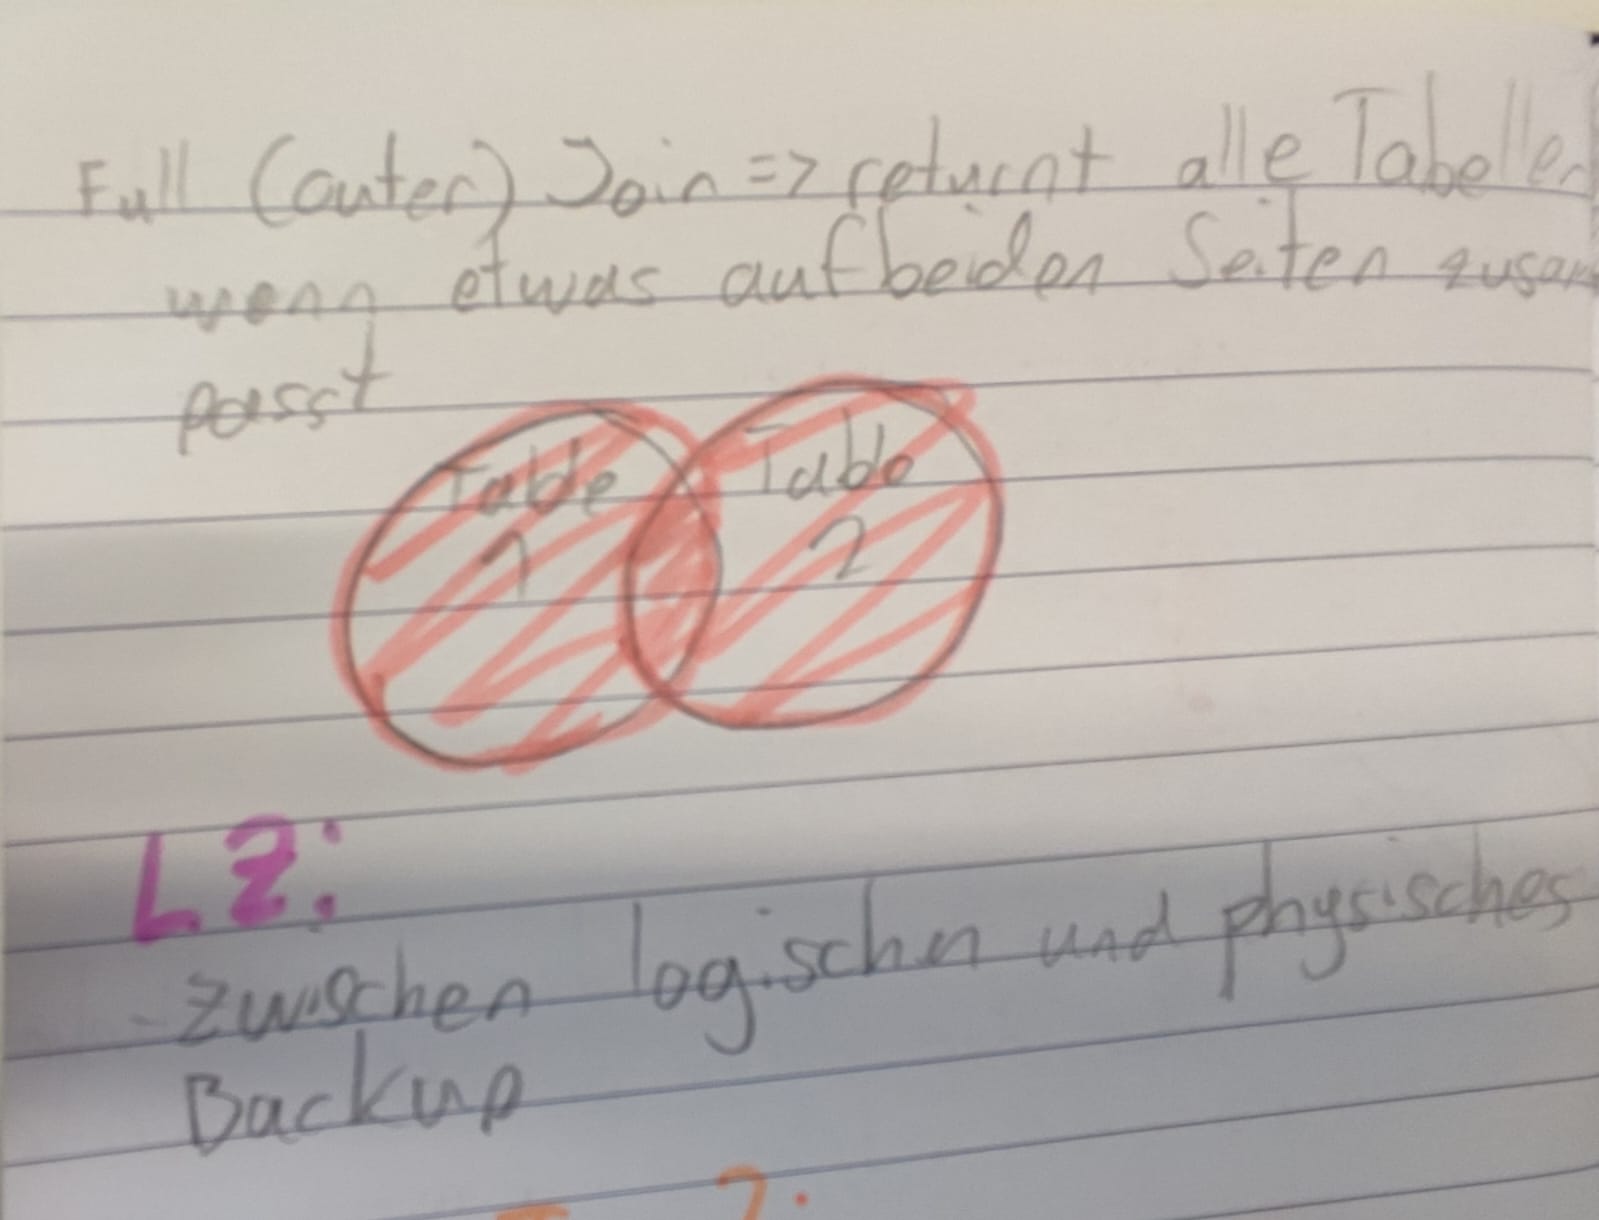 Full (outer) Join => returnt alle Tabellen
wenn etwas auf beiden Seiten zusam
passt
Table
1
Table
2
LZ:
- zwischen logischn und physisches
Backup
?: